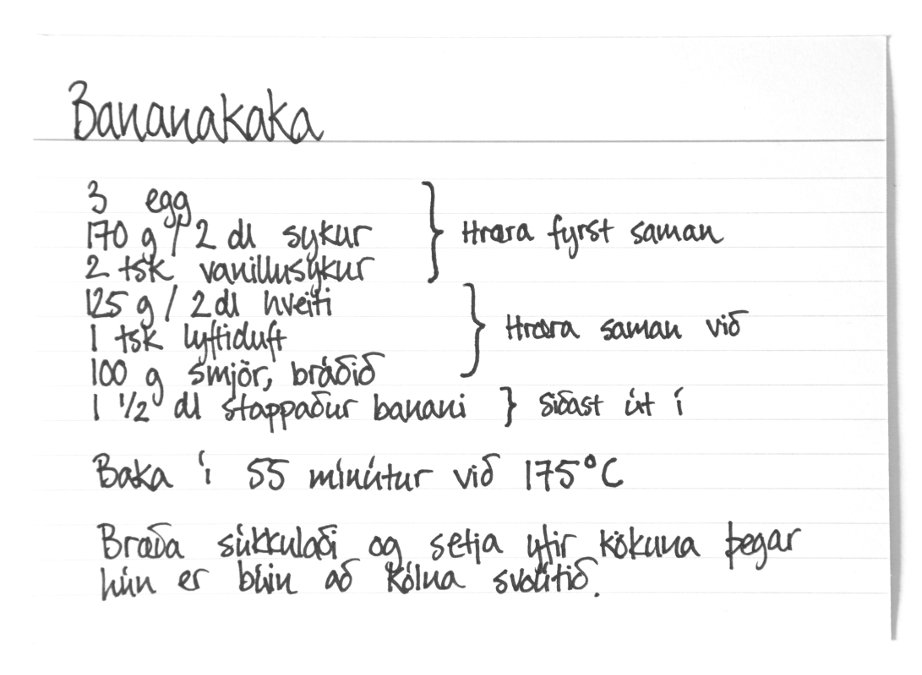 Bananakaka
3 egg
170 g / 2 dl sykur
2 tsk vanillusykur
Hræra fyrst saman
125 g / 2 dl hveiti
1 tsk lyftiduft
100 g smjör, bráðið
Hræra saman við
1 1/2 dl stappaður banani } síðast út í
Baka í 55 mínútur við 175°C
Bræða súkkulaði og setja yfir kökuna þegar
hún er búin að kólna svolítið.